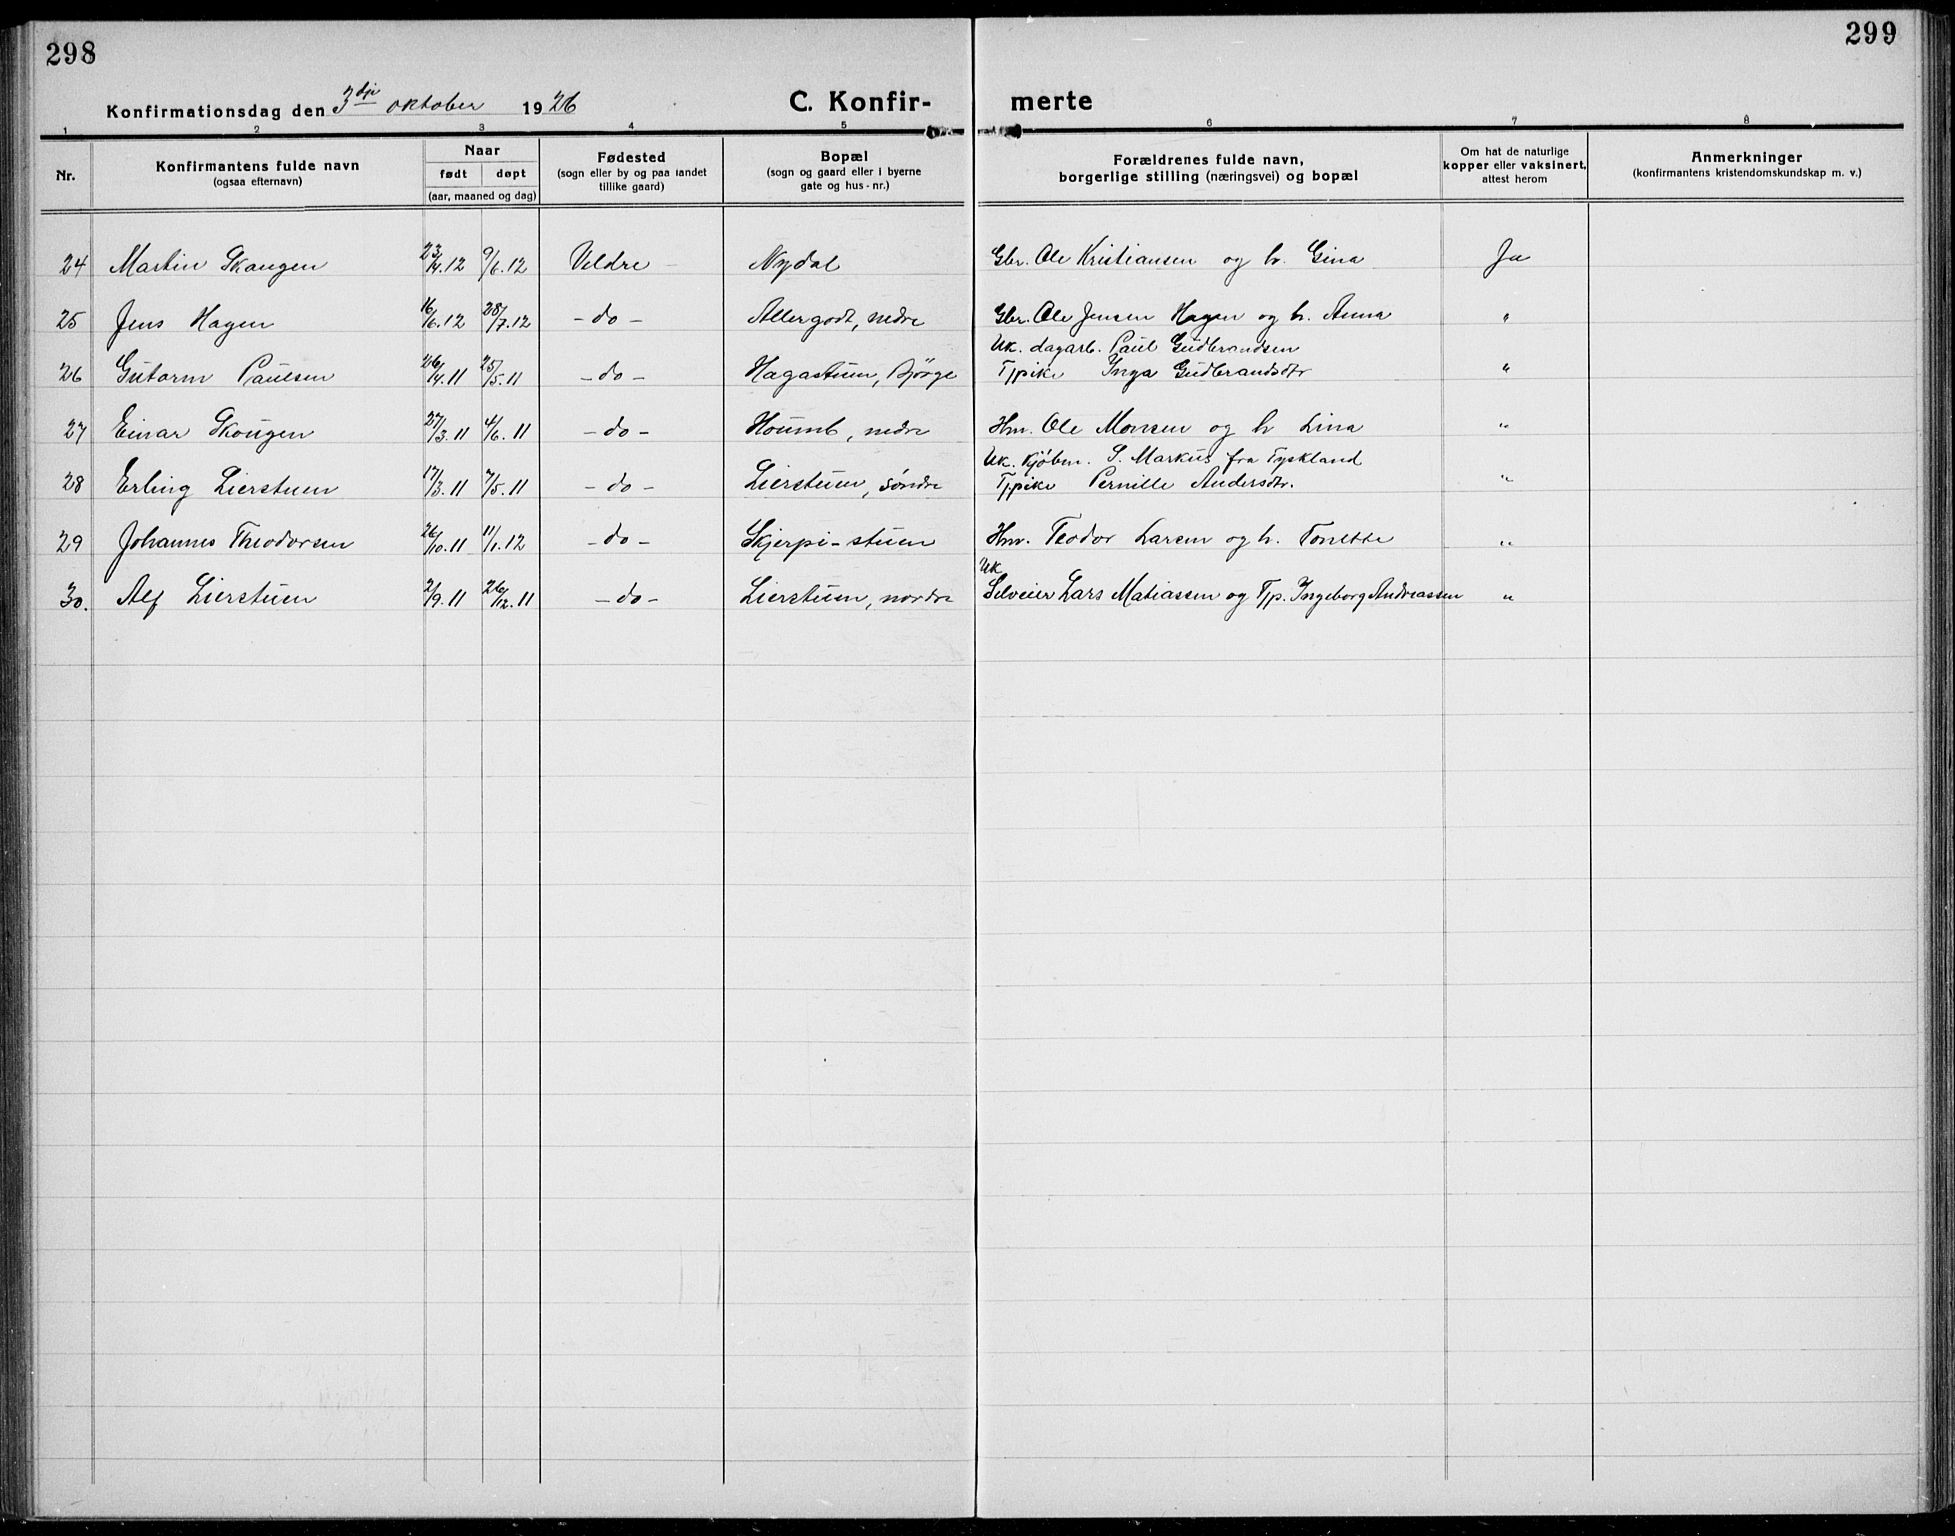 298
299
Konfirmationsdag den 3dje oktober 1926
C. Konfir-
merte
1 2 3 4 5 6 7 8
Nr.
Konfirmantens fulde navn
(ogsaa efternavn)
Naar
født døpt
(aar, maaned og dag)
Fødested
(sogn eller by og paa landet
tillike gaard)
Bopæl
(sogn og gaard eller i byerne
gate og hus-nr.)
Forældrenes fulde navn,
borgerlige stilling (næringsvei) og bopæl
Om hat de naturlige
kopper eller vaksinert,
attest herom
Anmerkninger
(konfirmantens kristendomskundskap m. v.)
24 Martin Skaugen 23/4.12 9/6.12 Veldre Nydal Gbr. Ole Kristiansen og h. Gina Ja
25 Jens Hagen 16/6.12 28/7.12 - do - Allergodt, nedre Gbr. Ole Jensen Hagen og h. Anna "
Uk. dagarb. Paul Gudbrandsen
26 Gutorm Paulsen 26/4.11 25/5.11 - do - Hagastuen, Bjørge Tjpike Inga Gudbrandsdtr "
27 Einar Skougen 27/3.11 4/6.11 - do - Houmb, nedre Hm. Ole Monsen og h Lina "
Uk. kjøbm. S. Markus fra Tyskland
28 Erling Lierstuen 17/3.11 7/5.11 - do - Lierstuen, søndre Tjpike Pernille Andersdtr. "
29 Johannes Theodorsen 26/10.11 11/1.12 - do - Skjerpi-stuen Hm. Teodor Larsen og h. Tonette "
Uk
30. Alf Lierstuen 2/9.11 26/12.11 - do - Lierstuen, nordre Selveier Lars Matiassen og Tjp. Ingeborg Andreassen "